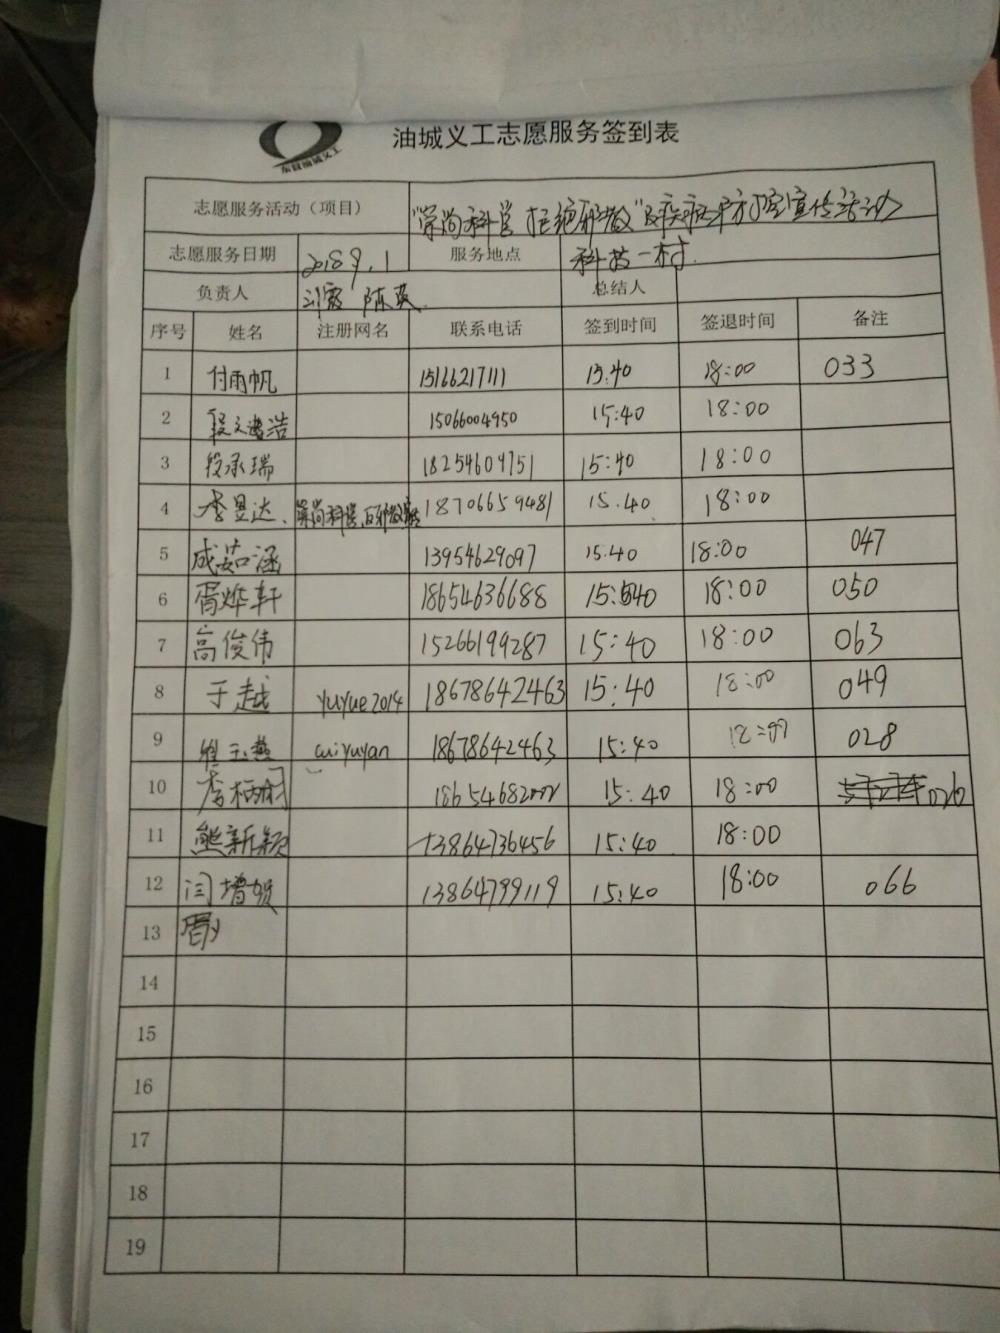 东营油城义工
油城义工志愿服务签到表
志愿服务活动（项目） "崇尚科学 拒绝邪教"及疾病预防控宣传活动
志愿服务日期 2018 9.1 服务地点 科技一村.
负责人 刘霞 陈英. 总结人
序号 姓名 注册网名 联系电话 签到时间 签退时间 备注
1 付雨帆 15166217111 15:40 18:00 033
2 段文浩 15066004950 15:40 18:00
3 段承瑞 18254609751 15:40 18:00
4 李昱达、 崇尚科学、 18706659481 15.40 18:00
5 成茹涵 13954629097 15.40 18:00 047
6 胥烨轩 18654636688 15:40 18:00 050
7 高俊伟 15266199287 15:40 18:00 063
8 于越 yuyue2014 18678642463 15:40 18:00 049
9 崔玉燕 cuiyuyan 18678642463 15:40 18:00 028
10 李 186546820 15:40 18:00 026
11 熊新颖 13864736456 15:40 18:00
12 闫增 13864799119 15:40 18:00 066
13
14
15
16
17
18
19